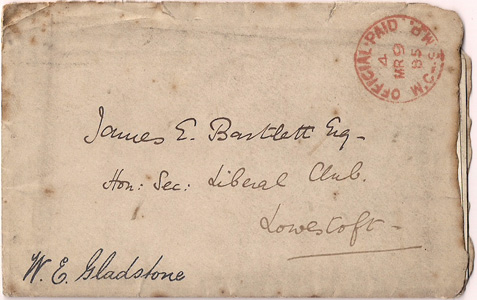 OFFICIAL PAID
4
MR 9
85
W.C.
James E. Bartlett Esq-
Hon: Sec: Liberal Club.
Lowestoft-
W. E. Gladstone